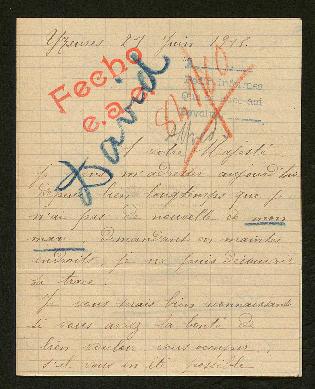 Yzeures 27 Juin 1918.
Fecho
e.a.e.
David
84760
A votre Majesté
je viens m'adresser aujourd'hui
depuis bien longtemps que je
n'ai pas de nouvelle de mon
mari Demandant en maintes
endroits, je ne puis découvrir
sa trace.
Je vous serais bien reconnaissante
si vous aviez la bonté de
bien vouloir vous occuper
s'il vous in été possible